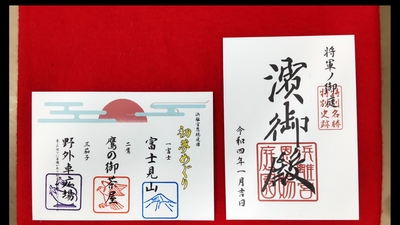 将軍ノ御庭
特別名勝
特別史跡
濱御殿
令和四年一月吉日
浜離宮恩賜庭園
初夢めぐり
一富士
富士見山
二鷹
鷹の御茶屋
三茄子
野外卓広場